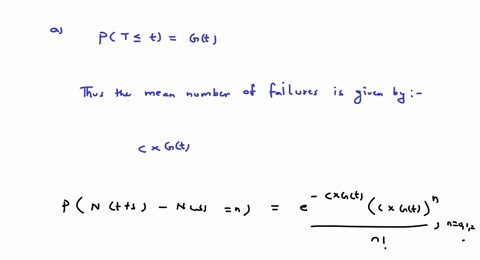 a) P(T ≤ t) = G(t)
Thus the mean number of failures is given by:-
c x G(t)
P(N(t+s) - N(s) = n) = e^{-c x G(t)} (c x G(t))^n / n! , n=0,1,2